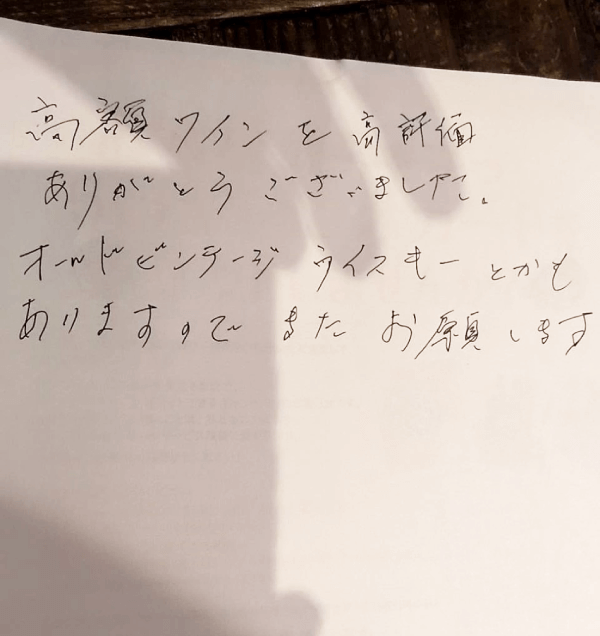 高額ワインを高評価
ありがとうございました。
オールドビンテージウイスキーとかも
ありますのでまたお願します